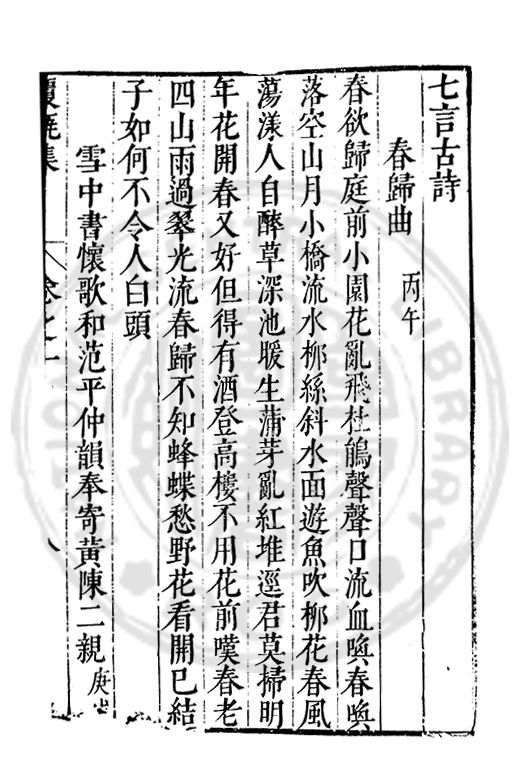 七言古詩
春歸曲 丙午
春欲歸庭前小園花亂飛杜鵑聲聲口流血喚春喚
落空山月小橋流水柳絲斜水面遊魚吹柳花春風
蕩漾人自醉草深池暖生蒲芽亂紅堆逕君莫掃明
年花開春又好但得有酒登高樓不用花前嘆春老
四山雨過翠光流春歸不知蜂蝶愁野花看開已結
子如何不令人白頭
雪中書懷歌和范平仲韻奉寄黃陳二親 庚戌
集 卷之一 八